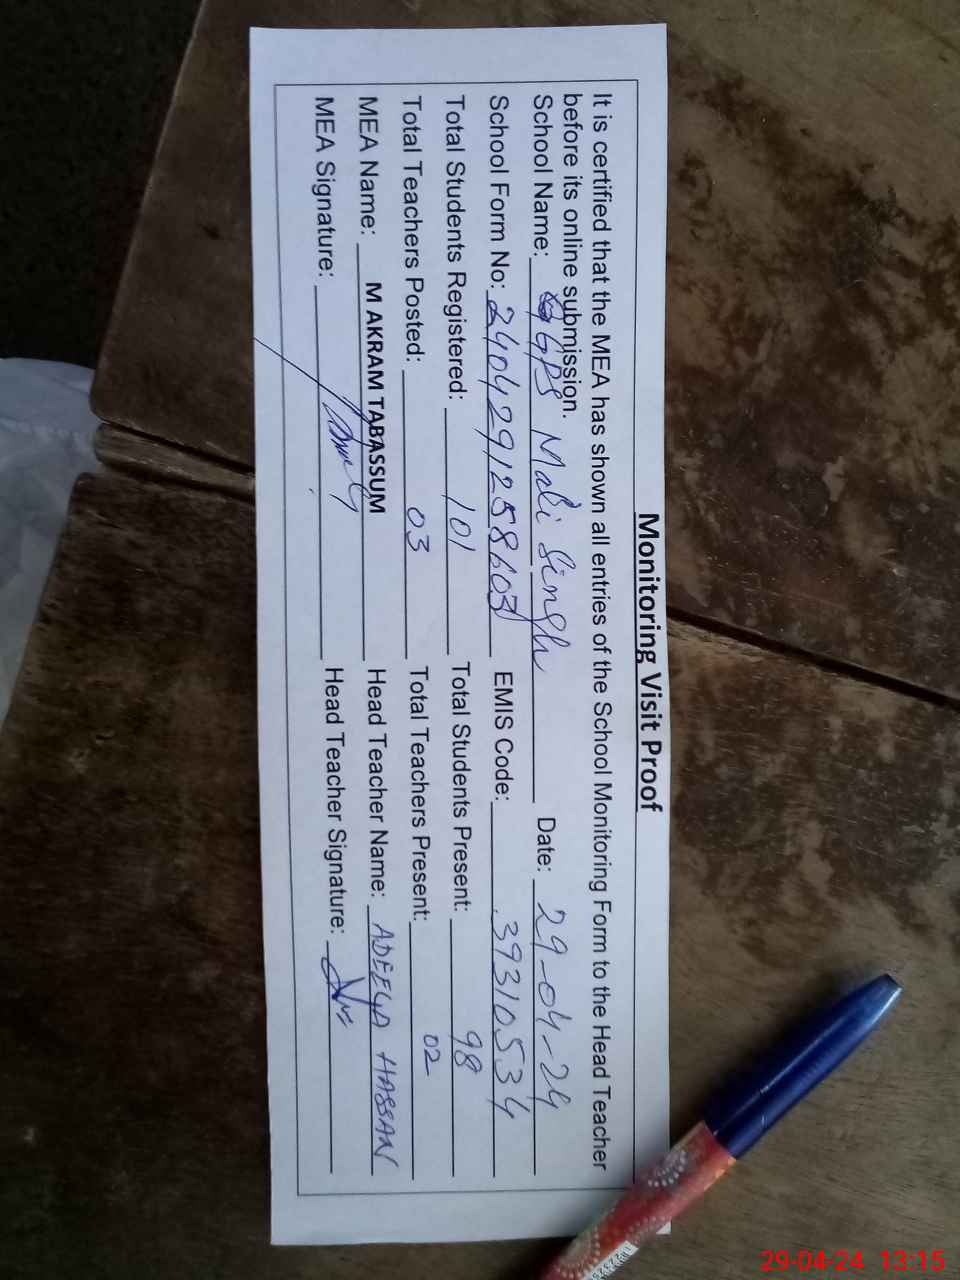 Monitoring Visit Proof
It is certified that the MEA has shown all entries of the School Monitoring Form to the Head Teacher
before its online submission.
School Name: GGPS Mali Singh Date: 29-04-24
School Form No: 2404291258603 EMIS Code: 39310534
Total Students Registered: 101 Total Students Present: 98
Total Teachers Posted: 03 Total Teachers Present: 02
MEA Name: M AKRAM TABASSUM Head Teacher Name: ADEELA HASSAN
MEA Signature: Head Teacher Signature:
29-04-24 13:15